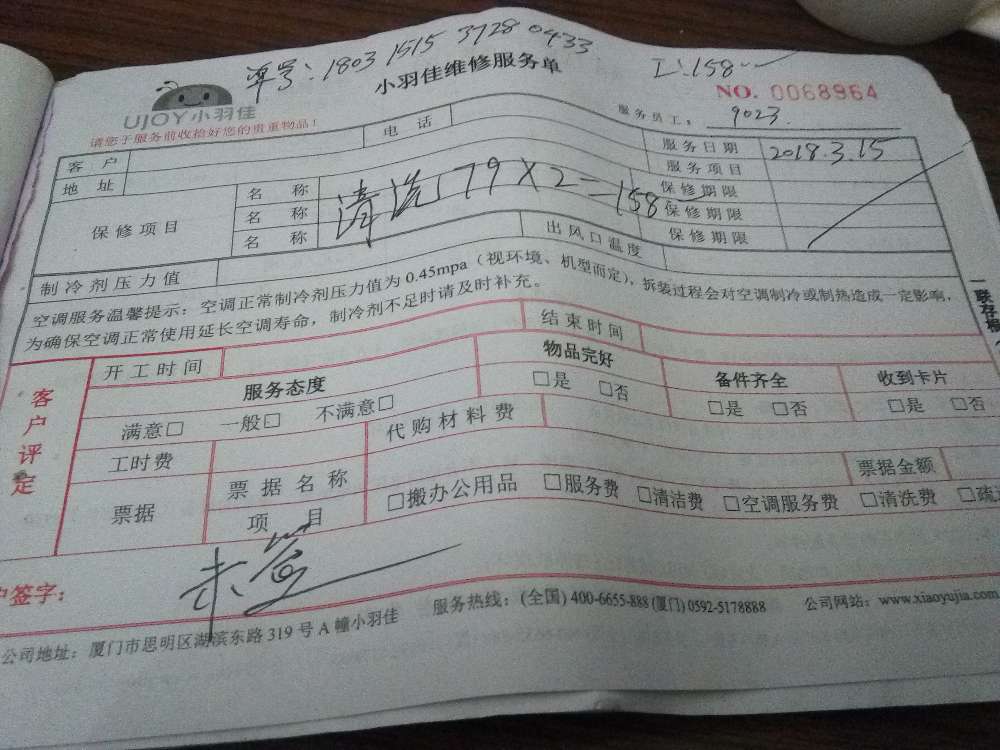 单号:1803 1515 3728 0433
工:158
UJOY小羽佳
小羽佳维修服务单
NO. 0068964
请您于服务前收拾好您的贵重物品!
服务员工: 9023
客 户
电 话
服务日期 2018.3.15
地 址
服务项目
保修项目
名 称
保修期限
名 称
保修期限
名 称
保修期限
清洗 79X2=158
制冷剂压力值
出风口温度
空调服务温馨提示:空调正常制冷剂压力值为0.45mpa(视环境、机型而定),拆装过程会对空调制冷或制热造成一定影响,
为确保空调正常使用延长空调寿命,制冷剂不足时请及时补充。
一联存根
客户评定
开工时间
结束时间
服务态度
物品完好
备件齐全
收到卡片
满意□ 一般□ 不满意□
□是 □否
□是 □否
□是 □否
工时费
代购材料费
票据
票据名称
票据金额
项 目
□搬办公用品 □服务费 □清洁费 □空调服务费 □清洗费
户签字:
公司地址:厦门市思明区湖滨东路319号A幢小羽佳
服务热线:(全国)400-6655-888(厦门)0592-5178888
公司网站:www.xiaoyujia.com